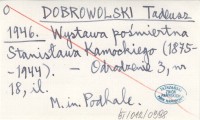 O DOBROWOLSKI Tadeusz
1946. Wystawa pośmiertna
Stanisława Kamockiego (1875-
-1944). - Odrodzenie 3, nr
18, il.
M. in. Podhale.